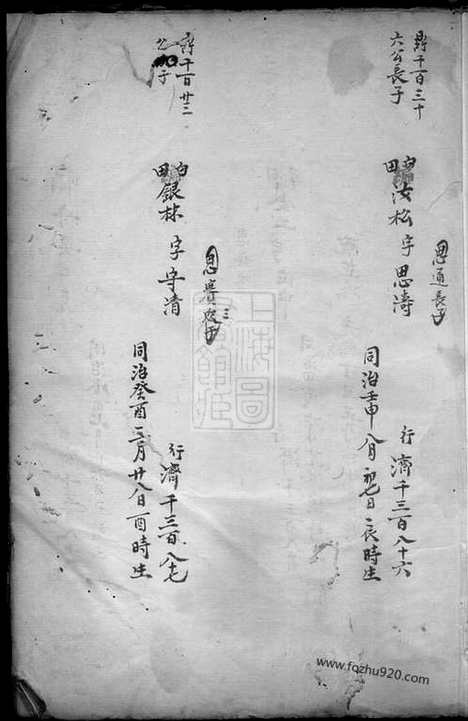 鼎千百三十
六公長子
白田
汝松字思濤
思通長子
行濟千三百八十六
同治壬申八月初七日辰時生
千百廿三
公子
白田
銀林字守清
思賚
三
行濟千三百八七
同治癸酉二月廿八日酉時生
上海圖書館藏
www.fqzhu920.com